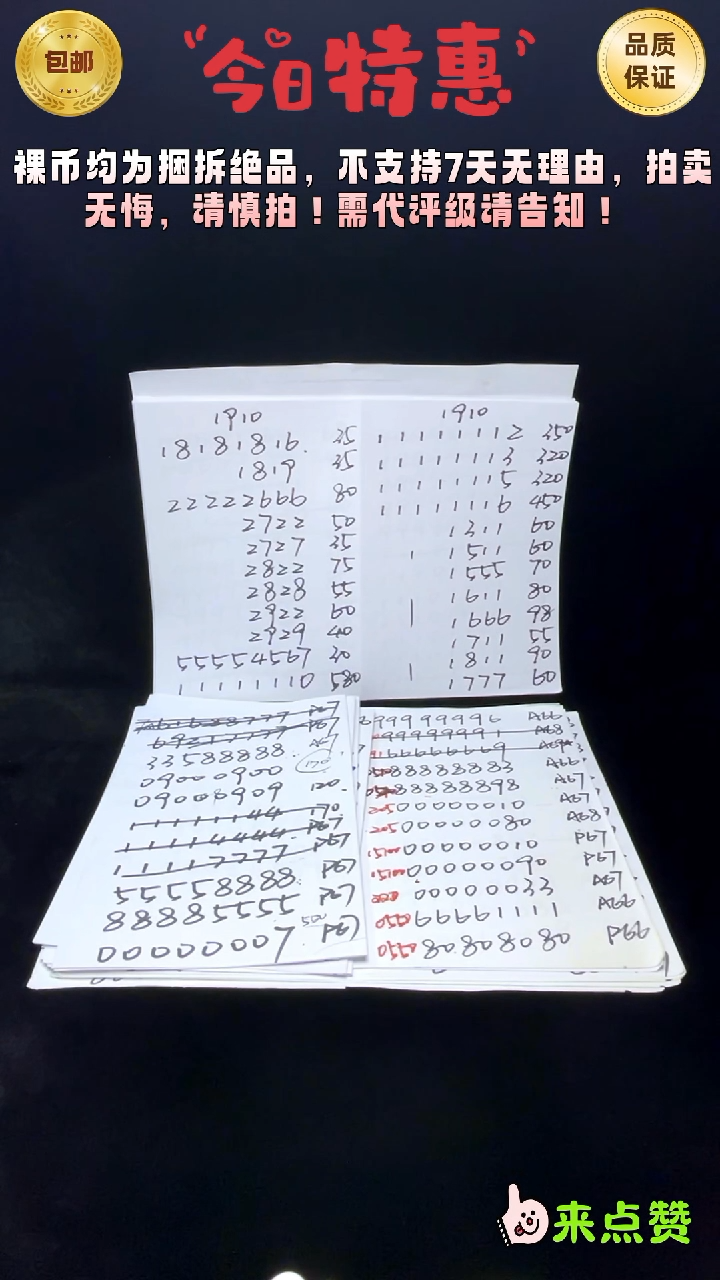 包邮
“今日特惠”
品质
保证
裸币均为捆拆绝品，不支持7天无理由，拍卖
无悔，请慎拍！需代评级请告知！
1910
18181816. 35
1819 35
22222666 80
2722 50
2727 35
2822 75
2828 55
2922 60
2929 40
55554567 30
11111110 580
1910
11111112 350
11111113 320
11111115 320
11111116 450
1311 60
1 1511 60
1555 70
1611 80
1 1666 98
1711 55
1811 90
1 1777 60
33588888
09000900 170
09000909 120.
11111144 170
11114444 P67
11117777 P67
55558888 P67
88885555 P67
00000007 500 P67
99999996 A66
99999991 A68
66666669
88888883 A66
88888898 A67
205 00000010 A67
205 00000080 A68
15100 00000010 P67
15100 00000090 P67
00000033 A67
050 66661111 A66
0550 80808080 P66
来点赞